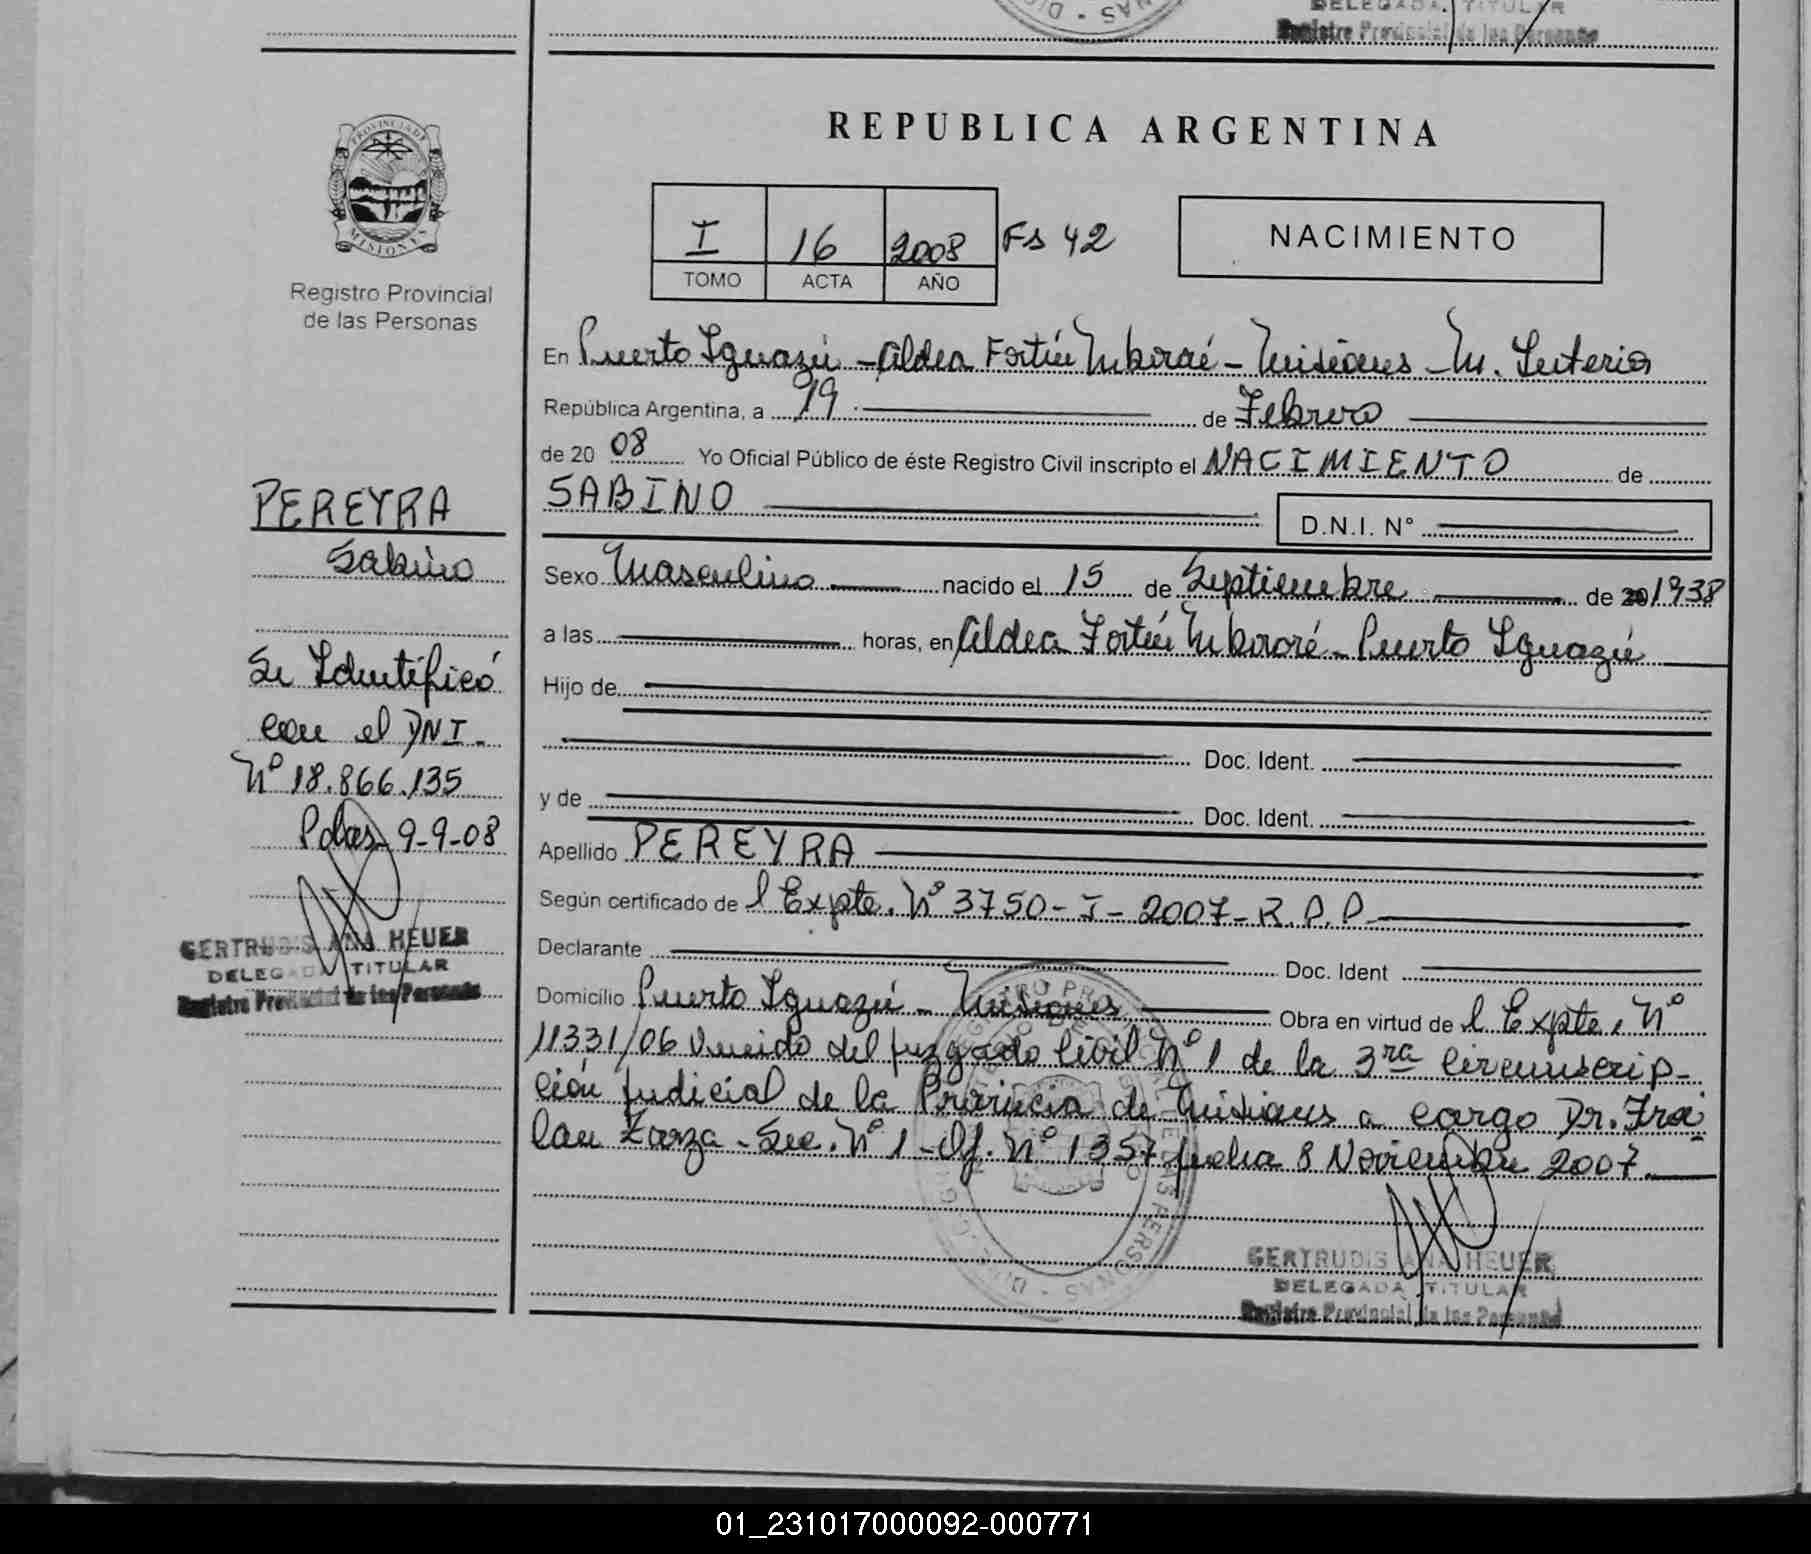 DELEGADA TITULAR
Registro Provincial de las Personas
REPUBLICA ARGENTINA
PROVINCIA DE
MISIONES
Registro Provincial
de las Personas
I 16 2008 Fs 42
TOMO ACTA AÑO
NACIMIENTO
En Puerto Iguazú - Aldea Fortín Mbororé - Misiones - M. Interior
República Argentina, a 19 de Febrero
de 20 08 Yo Oficial Público de éste Registro Civil inscripto el NACIMIENTO de
SABINO D.N.I. N°
PEREYRA
Sabino
Sexo Masculino nacido el 15 de Septiembre de 20 1938
a las horas, en Aldea Fortín Mbororé - Puerto Iguazú
Se Identificó
con el DNI.
N° 18.866.135
Pdas 9-9-08
GERTRUDIS ANA HEUER
DELEGADA TITULAR
Registro Provincial de las Personas
Hijo de
Doc. Ident.
y de Doc. Ident.
Apellido PEREYRA
Según certificado de l Expte. N° 3750 - I - 2007 - R.P.P.
Declarante Doc. Ident
Domicilio Puerto Iguazú - Misiones Obra en virtud de l Expte. N°
11331/06 Venido del Juzgado Civil N° 1 de la 3ra Circunscrip-
ción Judicial de la Provincia de Misiones a cargo Dr. Froi-
lan Zarza - Sec. N° 1 - Of. N° 1357 fecha 8 Noviembre 2007.
GERTRUDIS ANA HEUER
DELEGADA TITULAR
Registro Provincial de las Personas
01_231017000092-000771